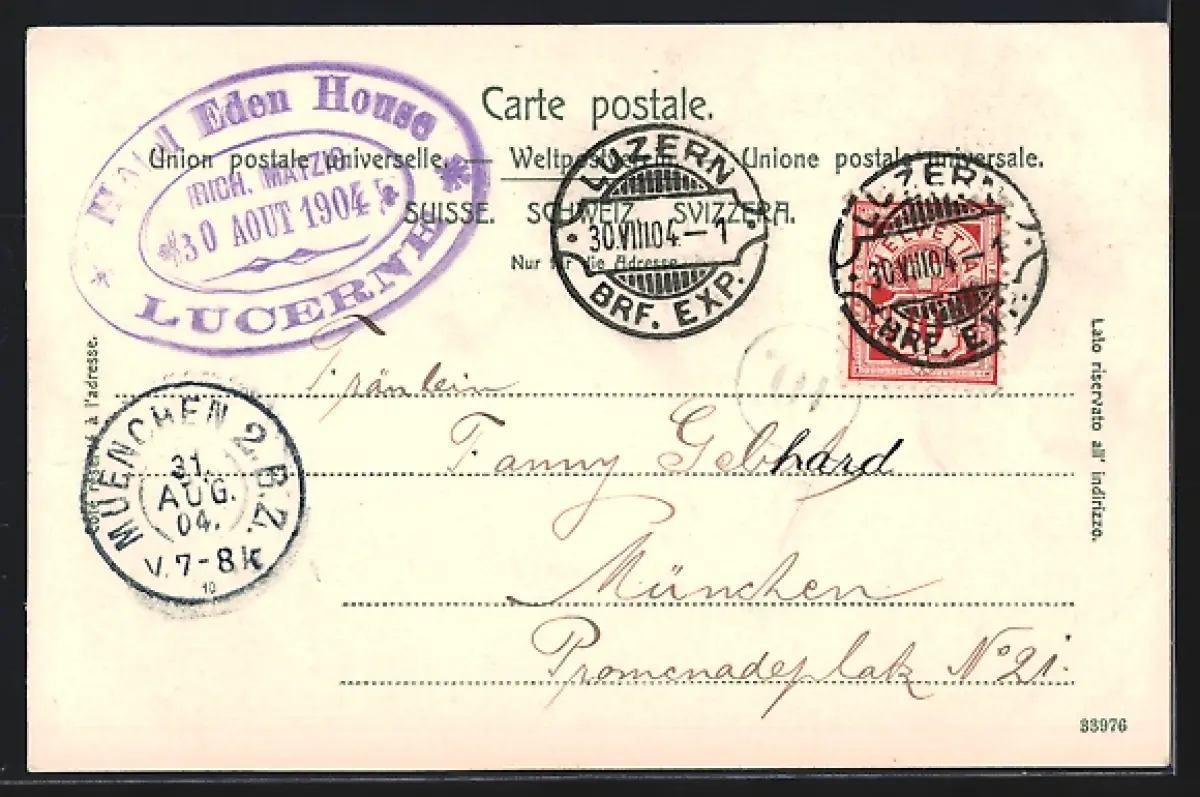 Carte postale.
Union postale universelle. — Weltpostverein. — Unione postale universale.
SUISSE. SCHWEIZ. SVIZZERA.
Nur für die Adresse
Eden House
RICH. MATZIG
30 AOUT 1904
LUCERNE
LUZERN
30.VIII.04 – 1
BRF. EXP.
LUZERN
30.VIII.04 – 1
BRF. EXP.
HELVETIA
10
Côté réservé à l'adresse.
Lato riservato all' indirizzo.
MUENCHEN 2. B.Z.
31.
AUG.
04.
V. 7-8 k
10
Fräulein
Fanny Gebhard
München
Promenadeplatz No 21.
33976